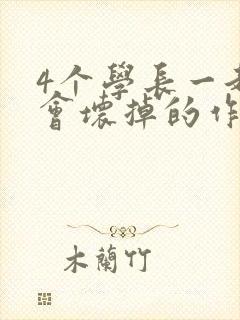 4个學長一
會壞掉的作
木蘭竹